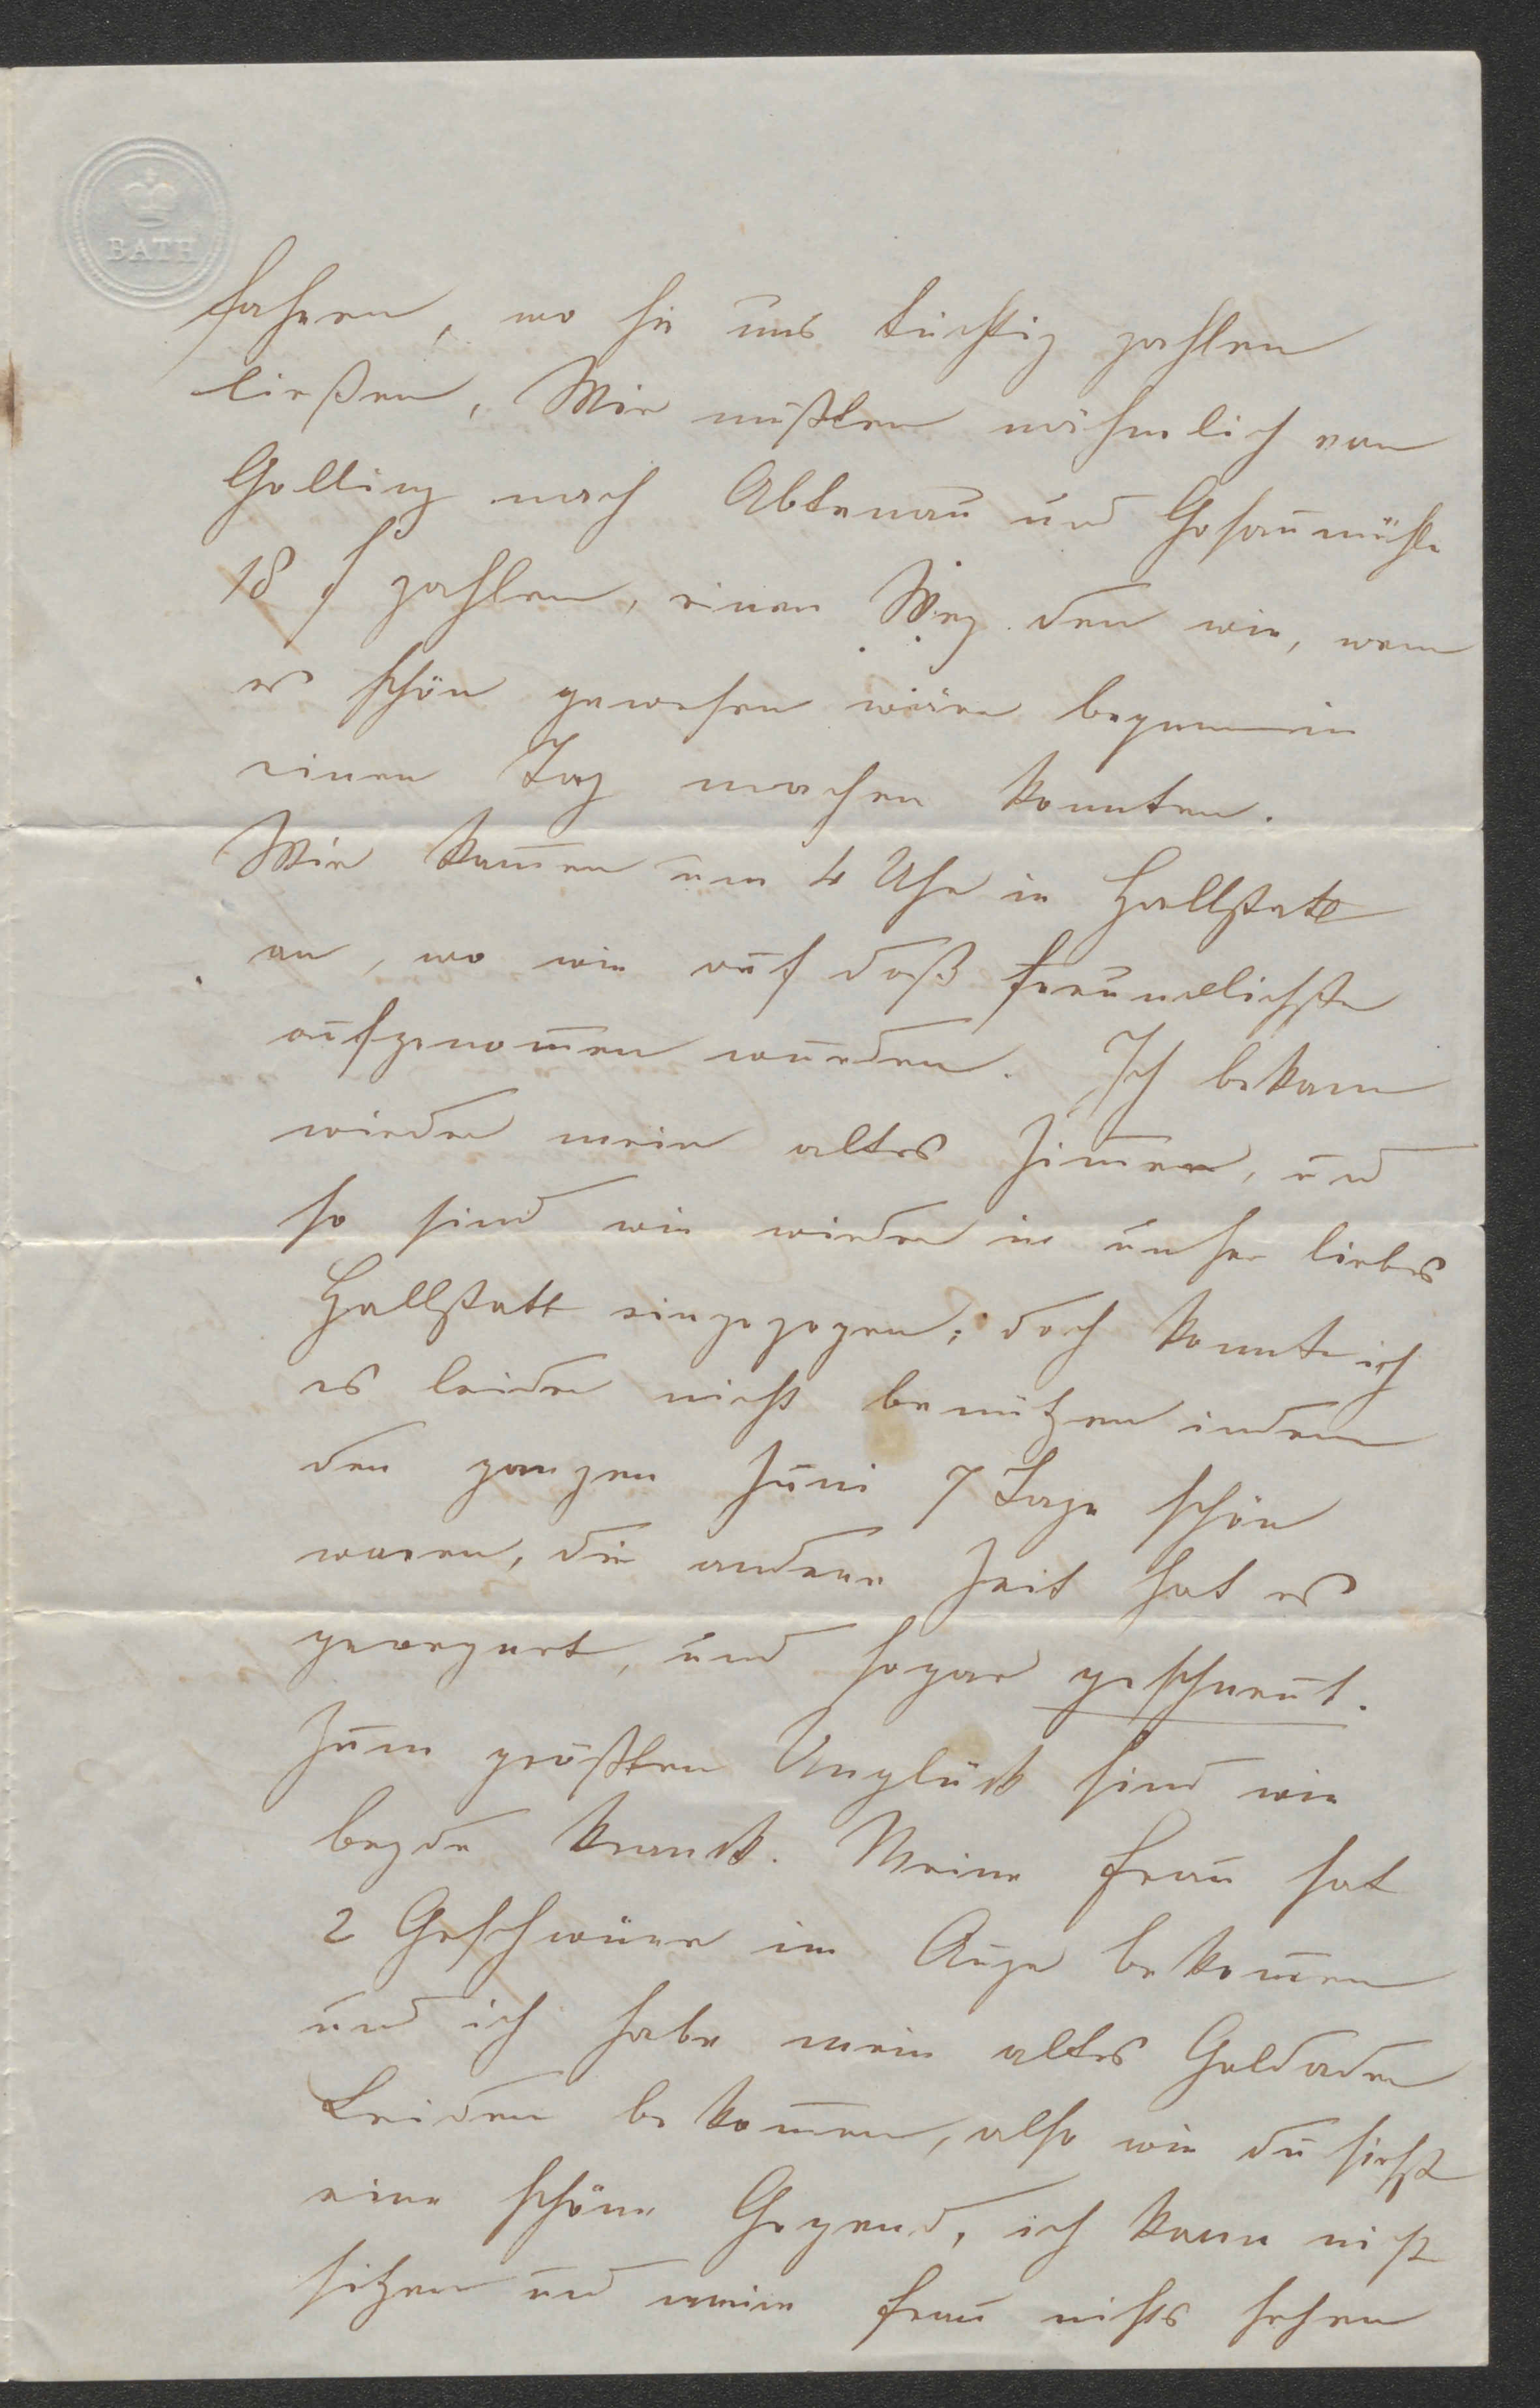 BATH
fahren, wo sie uns tüchtig zahlen
ließen, Wir mußten nähmlich von
Golling nach Abtenau und Gosaumühle
18 f zahlen, einen Weg den wir, wenn
es schön gewesen wäre bequem in
einen Tag machen konnten.
Wir kam̅en um 4 Uhr in Hallstatt
an, wo wir auf daß freundlichste
aufgenom̅en wurden. Ich bekam
wieder mein altes Zim̅er, und
so sind wir wieder in unser liebes
Hallstatt eingezogen; doch konnte ich
es leider nicht benützen indem
den ganzen Juni 7 Tage schön
waren, die andere Zeit hat es
geregnet, und sogar geschneut.
Zum größten Unglück sind wir
beyde krank. Meine Frau hat
2 Geschwüre im Auge bekom̅en
und ich habe mein altes Goldader
Leiden bekom̅en, also wie du siehst
eine schöne Gegend, ich kann nicht
sitzen und meine Frau nichts sehen